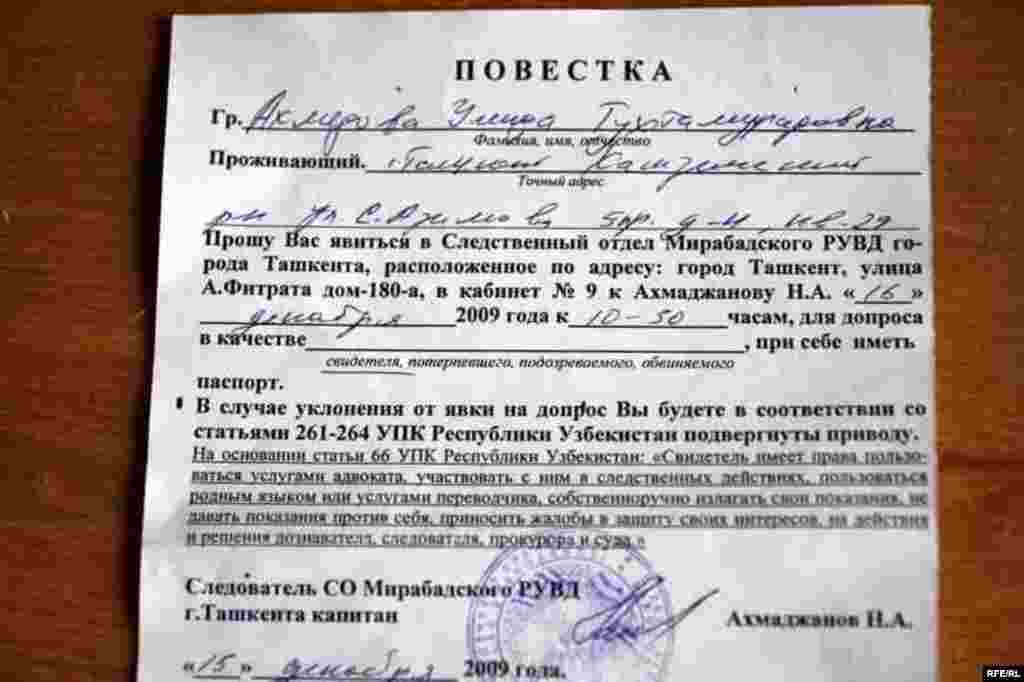 ПОВЕСТКА
Гр. Ахмедова Умида Тухтамурадовна
Фамилия, имя, отчество
Проживающий.
Точный адрес
ул С.Азимова 5пр. д-4, кв-29
Прошу Вас явиться в Следственный отдел Мирабадского РУВД го-
рода Ташкента, расположенное по адресу: город Ташкент, улица
А.Фитрата дом-180-а, в кабинет № 9 к Ахмаджанову Н.А. «16»
декабря 2009 года к 10-50 часам, для допроса
в качестве, при себе иметь
свидетеля, потерпевшего, подозреваемого, обвиняемого
паспорт.
В случае уклонения от явки на допрос Вы будете в соответствии со
статьями 261-264 УПК Республики Узбекистан подвергнуты приводу.
На основании статьи 66 УПК Республики Узбекистан: «Свидетель имеет права пользо-
ваться услугами адвоката, участвовать с ним в следственных действиях, пользоваться
родным языком или услугами переводчика, собственноручно излагать свои показания, не
давать показания против себя, приносить жалобы в защиту своих интересов, на действия
и решения дознавателя, следователя, прокурора и суда »
Следователь СО Мирабадского РУВД
г.Ташкента капитан Ахмаджанов Н.А.
«15» декабря 2009 года.
RFE/RL